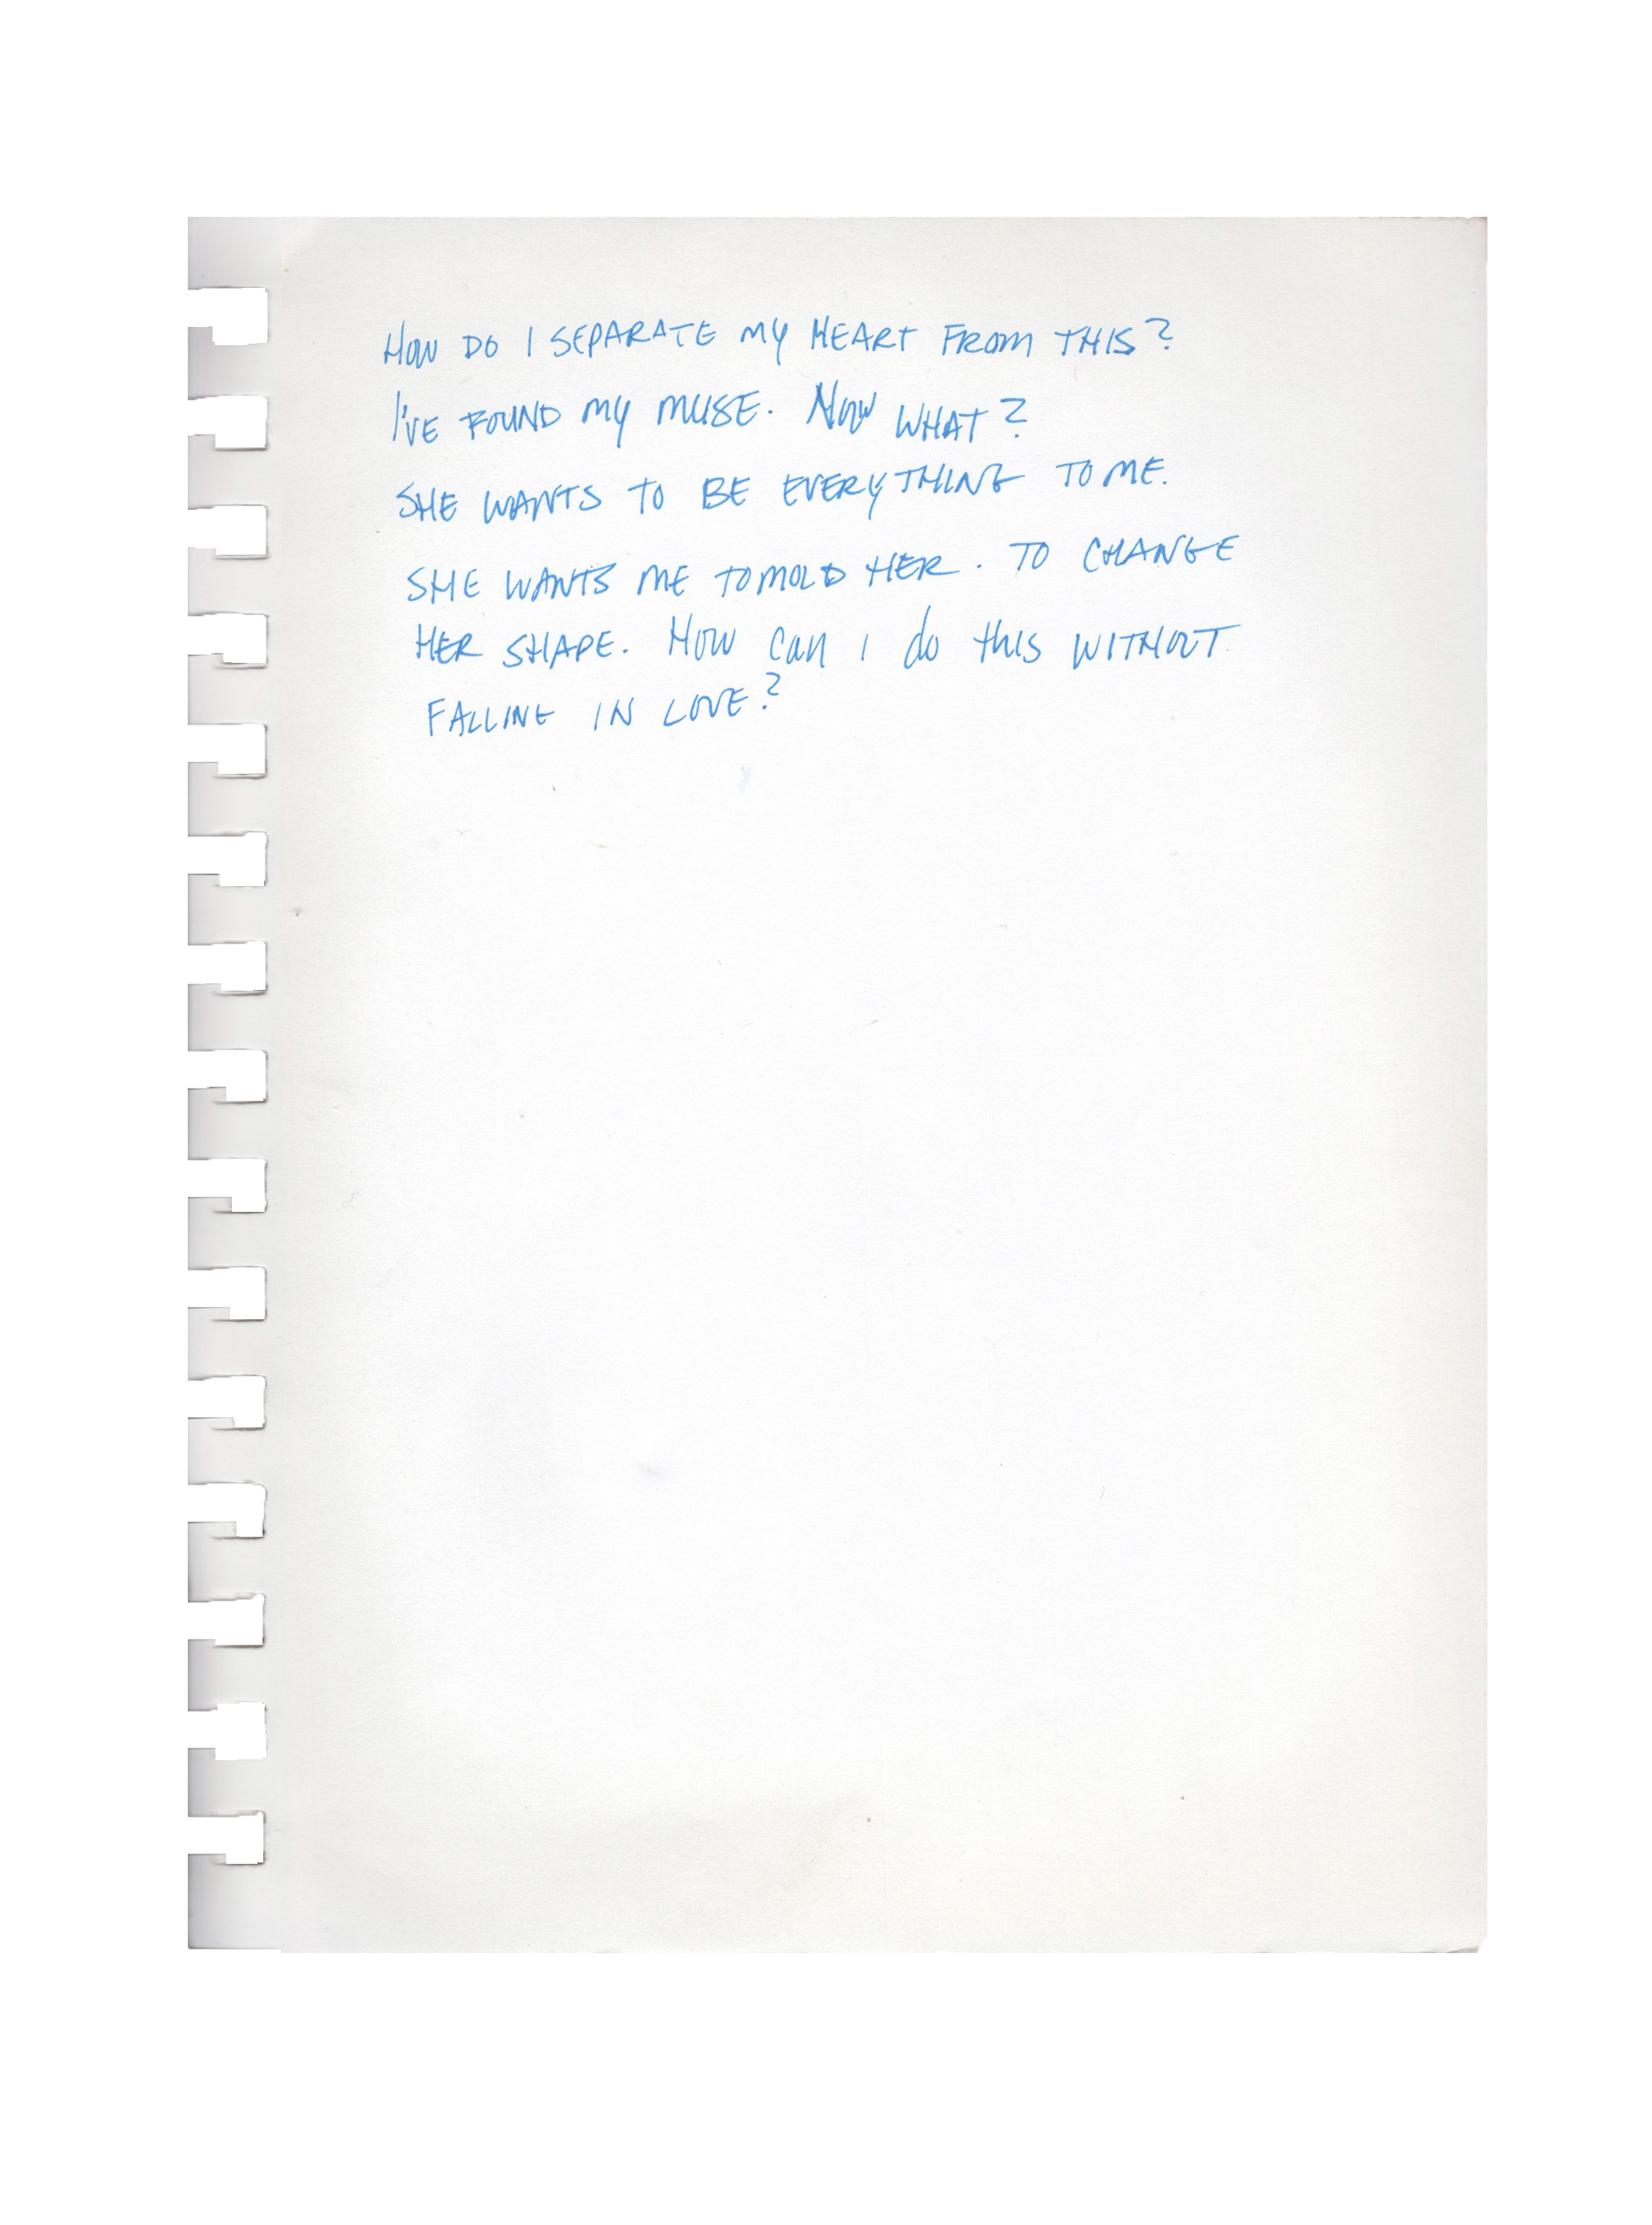 HOW DO I SEPARATE MY HEART FROM THIS?
I'VE FOUND MY MUSE. NOW WHAT?
SHE WANTS TO BE EVERYTHING TO ME.
SHE WANTS ME TO MOLD HER. TO CHANGE
HER SHAPE. HOW can I do this WITHOUT
FALLING IN LOVE?